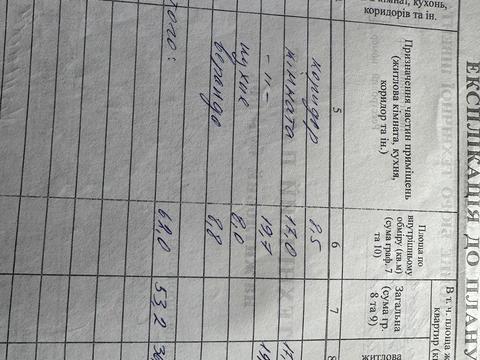 ЕКСПЛІКАЦІЯ ДО ПЛАНУ
кімнат, кухонь,
коридорів та ін.
Призначення частин приміщень
(житлова кімната, кухня,
коридор та ін.)
Площа по
внутрішньому
обміру (кв.м)
(сума граф. 7
та 10)
В т. ч. площа
квартир
Загальна
(сума гр.
8 та 9)
житлова
5 6 7 8
коридор 8.5
кімната 17,0
- 11 - 19,7
кухня 8,0
веранда 8,8
62.0 53,2